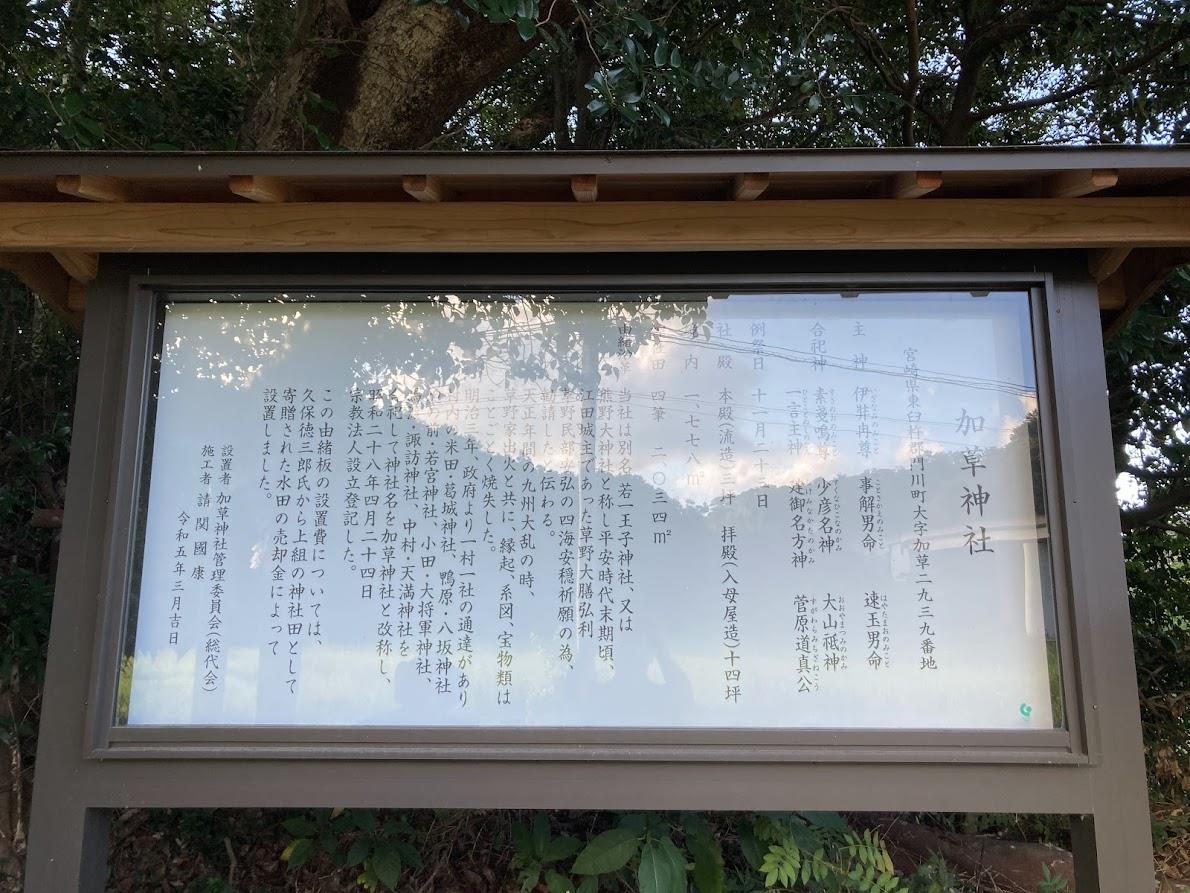 加草神社
宮崎県東臼杵郡門川町大字加草二九三九番地
主神 伊弉冉尊 事解男命 速玉男命
合祀神 素戔嗚尊 少彦名神 大山祗神
一言主神 建御名方神 菅原道真公
例祭日 十一月二十三日
社殿 本殿(流造)三坪 拝殿(入母屋造)十四坪
内 一、七七八㎡
田 四筆 二〇三四㎡
由緒 当社は別名、若一王子神社、又は
熊野大神社と称し平安時代末期頃、
江田城主であった草野大膳弘利
草野民部 弘の四海安穏祈願の為、
勧請したと伝わる。
天正年間の九州大乱の時、
草野家出火と共に、縁起、系図、宝物類は
ことごとく焼失した。
明治三年、政府より一村一社の通達があり
内の米田・葛城神社、鴨原・八坂神社
の前・若宮神社、小田・大将軍神社、
諏訪神社、中村・天満神社を
祀して神社名を加草神社と改称し、
昭和二十八年四月二十四日
宗教法人設立登記した。
この由緒板の設置費については、
久保徳三郎氏から上組の神社田として
寄贈された水田の売却金によって
設置しました。
設置者 加草神社管理委員会(総代会)
施工者 請関國康
令和五年三月吉日